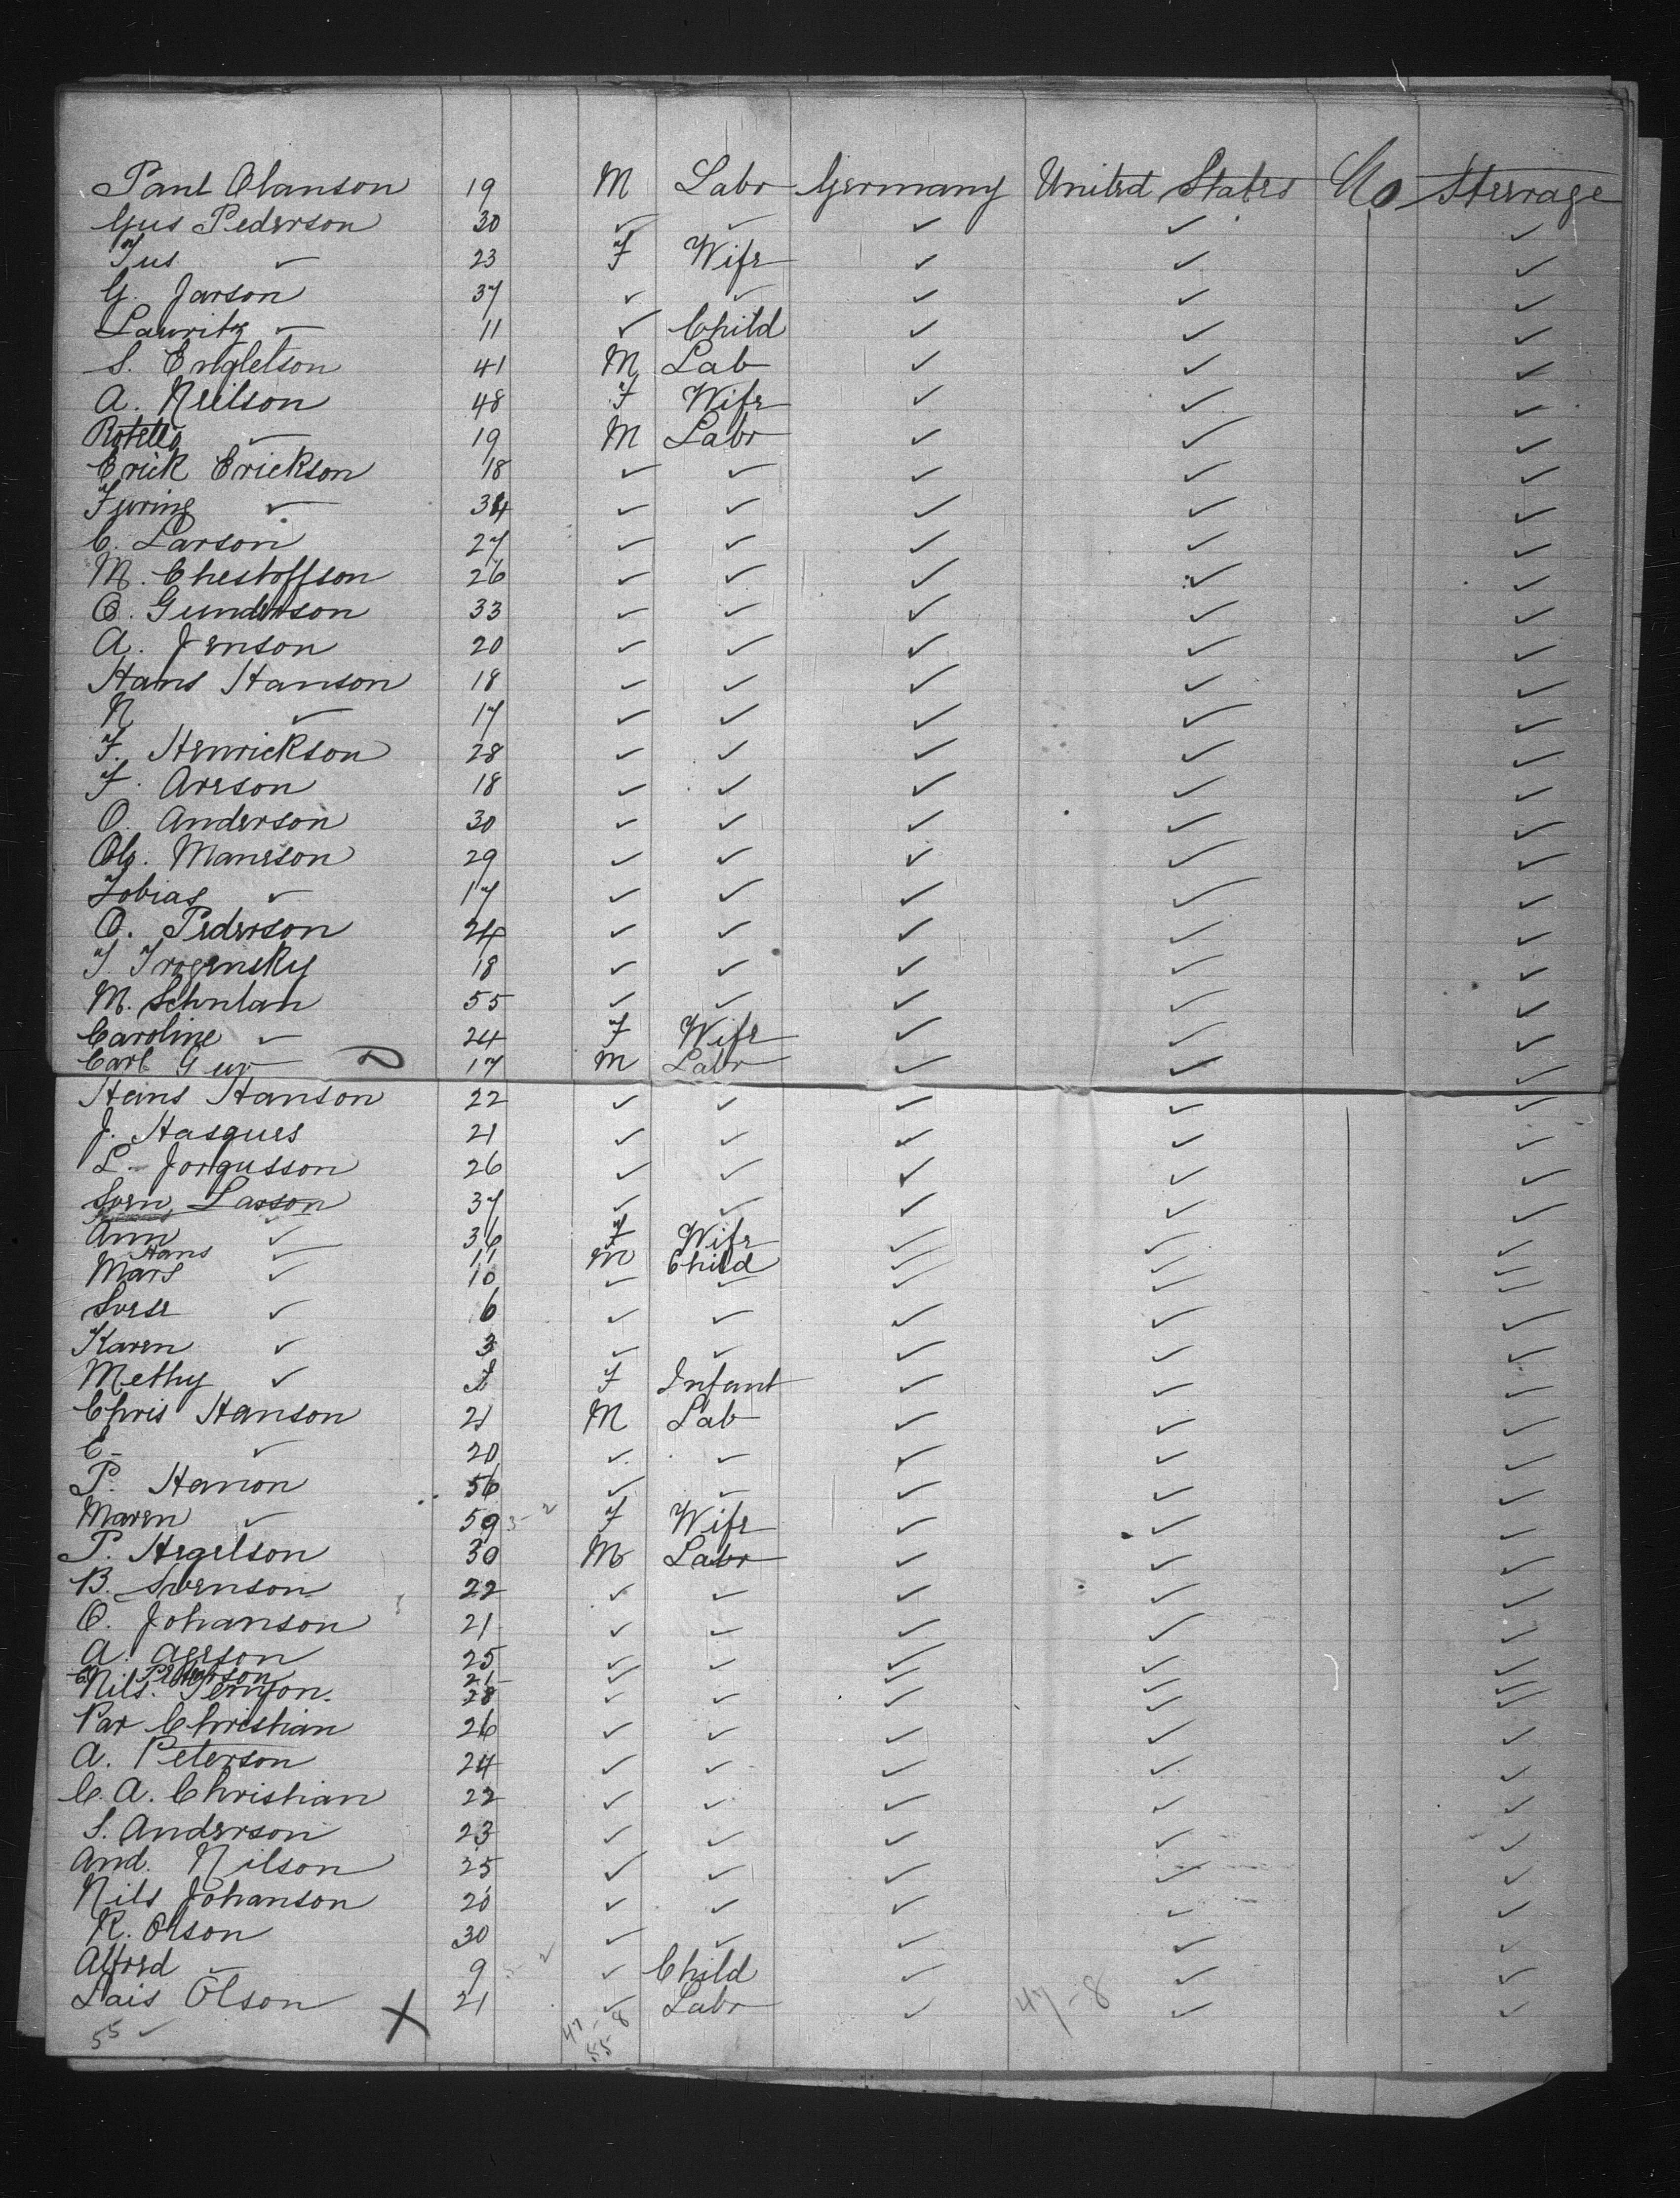 Paul Olanson 19 M Labr Germany United States No Steerage
Gus Pederson 30 ✓ ✓ ✓ ✓ ✓
Jus ✓ 23 F Wife ✓ ✓ ✓
G. Jarson 37 ✓ ✓ ✓ ✓ ✓
Lauritz ✓ 11 ✓ Child ✓ ✓ ✓
S. Engletson 41 M Lab ✓ ✓ ✓
A. Neilson 48 F Wife ✓ ✓ ✓
✓ 19 M Labr ✓ ✓ ✓
Erick Erickson 18 ✓ ✓ ✓ ✓ ✓
✓ 34 ✓ ✓ ✓ ✓ ✓
C. Larson 27 ✓ ✓ ✓ ✓ ✓
M. Chestoffson 26 ✓ ✓ ✓ ✓ ✓
O. Gunderson 33 ✓ ✓ ✓ ✓ ✓
A. Jenson 20 ✓ ✓ ✓ ✓ ✓
Hans Hanson 18 ✓ ✓ ✓ ✓ ✓
N ✓ 17 ✓ ✓ ✓ ✓ ✓
F. Henrickson 28 ✓ ✓ ✓ ✓ ✓
F. Areson 18 ✓ ✓ ✓ ✓ ✓
O. Anderson 30 ✓ ✓ ✓ ✓ ✓
Ole. Maneson 29 ✓ ✓ ✓ ✓ ✓
Tobias ✓ 17 ✓ ✓ ✓ ✓ ✓
O. Pederson 24 ✓ ✓ ✓ ✓ ✓
J. Trogensky 18 ✓ ✓ ✓ ✓ ✓
M. Schulan 55 ✓ ✓ ✓ ✓ ✓
Caroline ✓ 24 F Wife ✓ ✓ ✓
Carl 17 M Labr ✓ ✓ ✓
Hans Hanson 22 ✓ ✓ ✓ ✓ ✓
J. Hasques 21 ✓ ✓ ✓ ✓ ✓
L. Jorgusson 26 ✓ ✓ ✓ ✓ ✓
Sven Larson 37 ✓ ✓ ✓ ✓ ✓
Ann ✓ 36 F Wife ✓ ✓ ✓
Hans ✓ 11 M Child ✓ ✓ ✓
Mars ✓ 10 ✓ ✓ ✓ ✓ ✓
✓ 6 ✓ ✓ ✓ ✓ ✓
Karen ✓ 3 ✓ ✓ ✓ ✓ ✓
Methy ✓ F Infant ✓ ✓ ✓
Chris Hanson 21 M Lab ✓ ✓ ✓
C- ✓ 20 ✓ ✓ ✓ ✓ ✓
P. Hanon 56 ✓ ✓ ✓ ✓ ✓
Maren ✓ 59 F Wife ✓ ✓ ✓
P. Hegelson 30 M Labr ✓ ✓ ✓
B. Svenson 22 ✓ ✓ ✓ ✓ ✓
O. Johanson 21 ✓ ✓ ✓ ✓ ✓
A. Ageson 25 ✓ ✓ ✓ ✓ ✓
Peterson 21 ✓ ✓ ✓ ✓
Nils. 28 ✓ ✓ ✓ ✓ ✓
Par Christian 26 ✓ ✓ ✓ ✓ ✓
A. Peterson 24 ✓ ✓ ✓ ✓ ✓
C. A. Christian 22 ✓ ✓ ✓ ✓ ✓
S. Anderson 23 ✓ ✓ ✓ ✓ ✓
And. Nilson 25 ✓ ✓ ✓ ✓ ✓
Nils Johanson 20 ✓ ✓ ✓ ✓ ✓
R. Olson 30 ✓ ✓ ✓ ✓ ✓
Alfred ✓ 9 ✓ Child ✓ ✓ ✓
Lais Olson X 21 ✓ Labr ✓ 47-8 ✓ ✓
55 ✓ 47-8
55